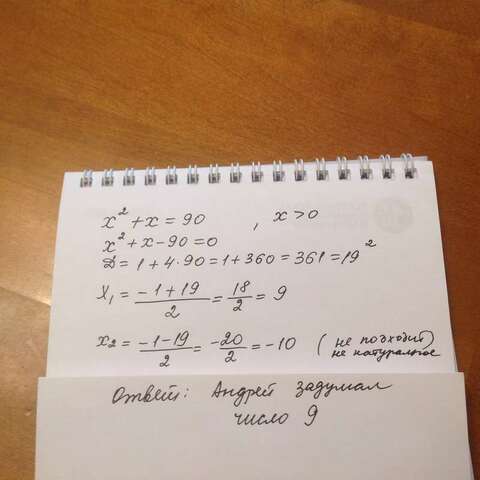 x² + x = 90 , x > 0
x² + x - 90 = 0
Д = 1 + 4·90 = 1 + 360 = 361 = 19²
x₁ = (-1 + 19)/2 = 18/2 = 9
x₂ = (-1 - 19)/2 = -20/2 = -10 (не подходит, не натуральное)
Ответ: Андрей задумал
число 9